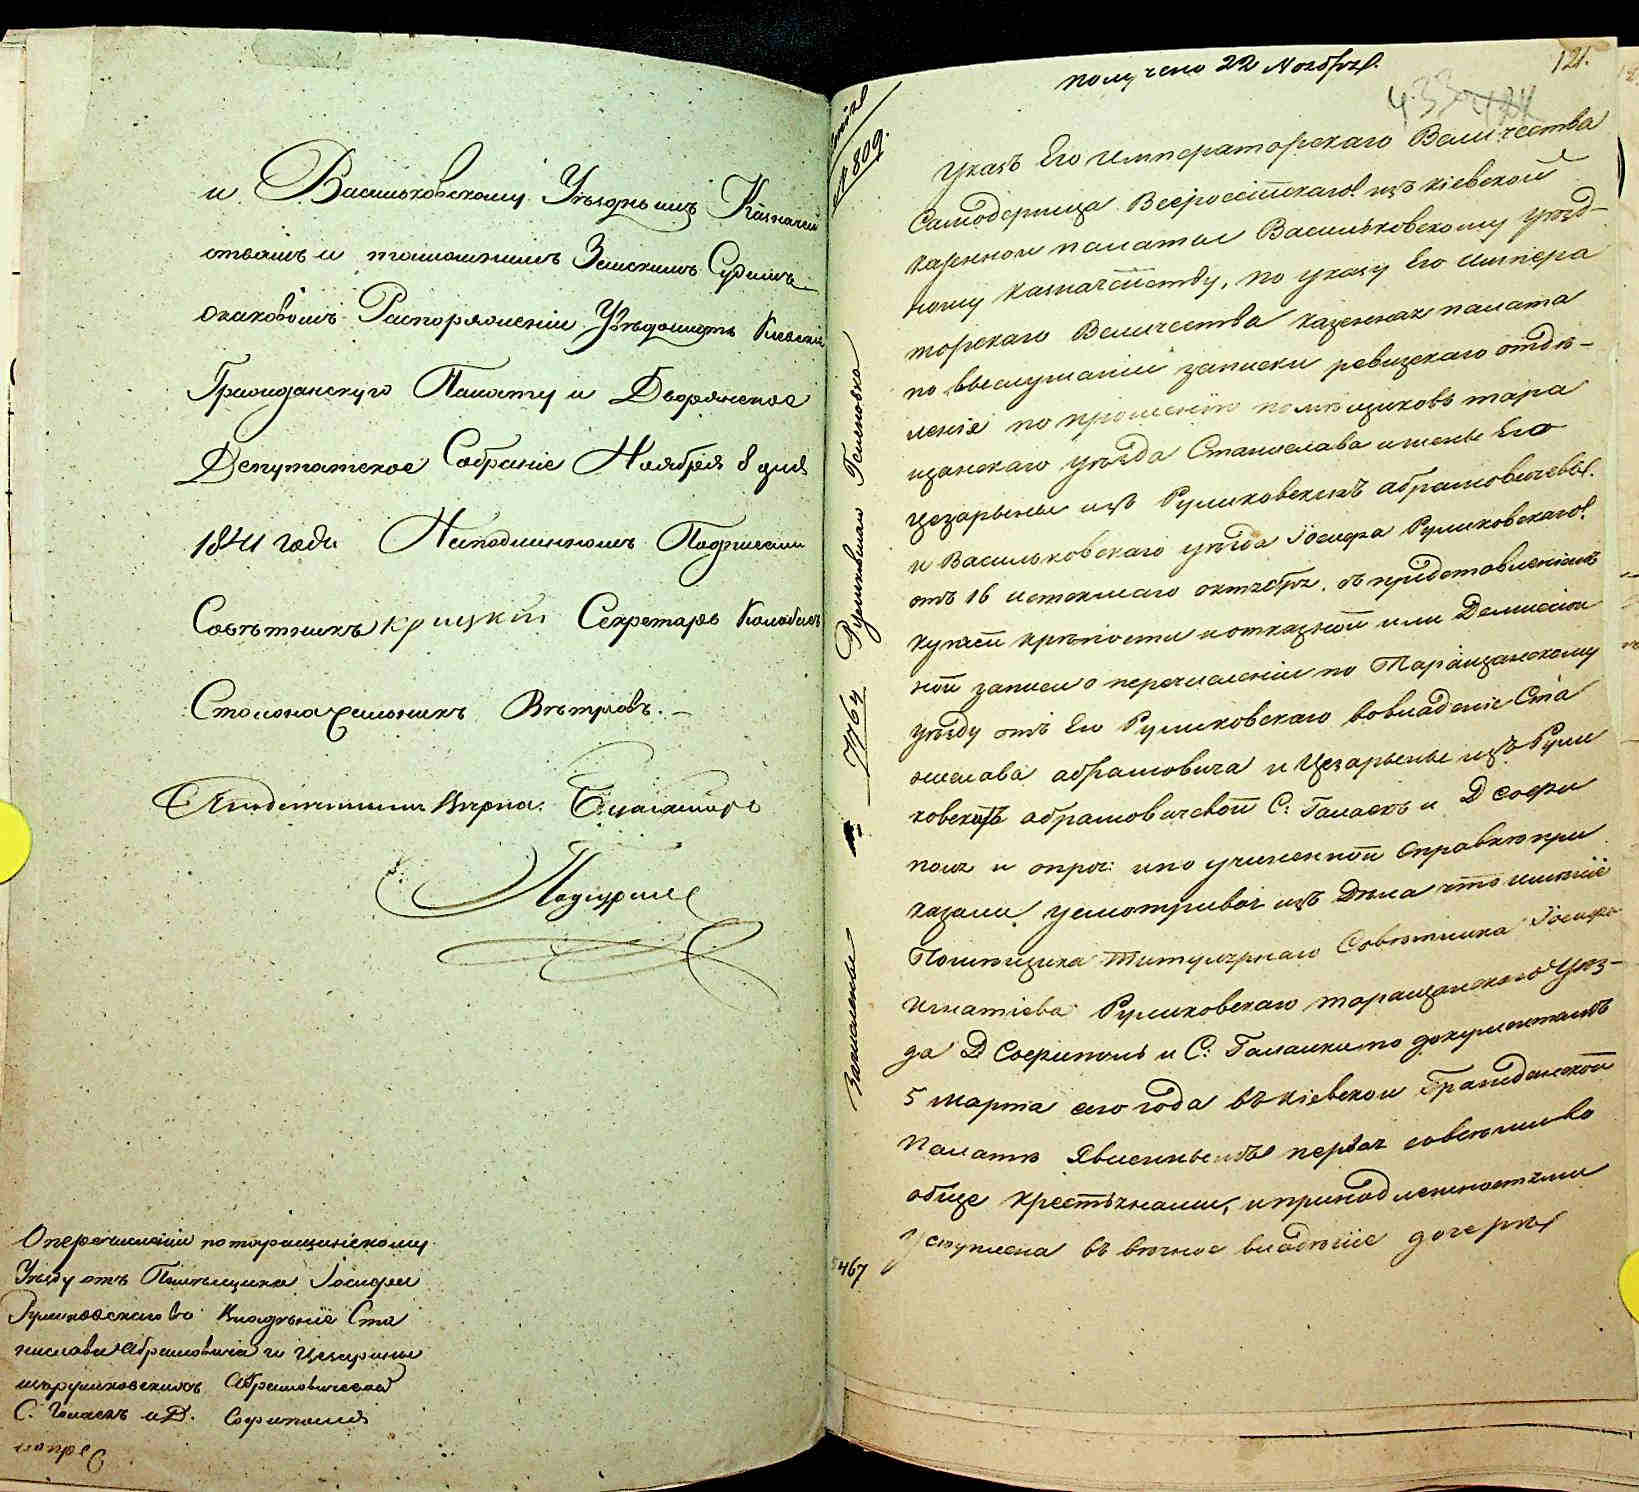 и Васильковскому Уѣзднымъ Казначей
ствамъ и тамошнимъ Земскимъ Судамъ
Окаковомъ Распоряженіи Увѣдомить Кіевскую
Гражданскую Палату и Дворянское
Депутатское Собраніе Ноября 8 дня
1841 года Наподлинномъ Подписали
Совѣтникъ Крицкій Секретарь
Столоначельникъ Вѣтровъ.
Спидлиннымъ Вѣрно:
Оперечисленіи потаращанскому
Уѣзду отъ Помѣщика Іосифа
Руликовскаго Во Владѣніе Ста
нислава Абрамовича и Цезарины
изъруликовскихъ Абрамовичевой
С. Галаекъ и Д. Софиполя
получено 22 Ноября.
121.
433
№ 809.
Указъ Его Императорскаго Величества
Самодержца Всероссійскаго изъ кіевской
казенной палаты Васильковскому уѣзд-
ному казначейству, по указу Его Импера
торскаго Величества казенная палата
по выслушаніи записки ревизскаго отдѣ-
ленія по прошенію помѣщиковъ тара
щанскаго уѣзда Станислава ижены Его
цезарины изъ Руликовскихъ абрамовичевы
и Васильковскаго уѣзда Іосифа Руликовскаго
отъ 16 истекшаго октября, съ представленіемъ
купчей крѣпости иотказной или Демиссіон
ной записи о перечисленіи по Таращанскому
уѣзду отъ Его Руликовскаго вовладеніе Ста
нислава абрамовича и Цезарины изъ Рули
ковскихъ абрамовичевой С: Галаекъ и Д Софи
поля и опроч: ипо учиненной справкѣ при
казали усмотривая изъ Дѣла что имѣніе
Помѣщика Титулярнаго Совѣтника Іосифа
игнатіева Руликовскаго таращанскаго Уѣз-
да Д Софиполь и С: Галайки по документамъ
5 марта сего года въ кіевской Гражданской
Палатѣ Явленнымъ первая совсѣмиво
обще крестьянами, ипринадлежностями
Уступлена въ вѣчное владѣніе дочерѣ
7764
467